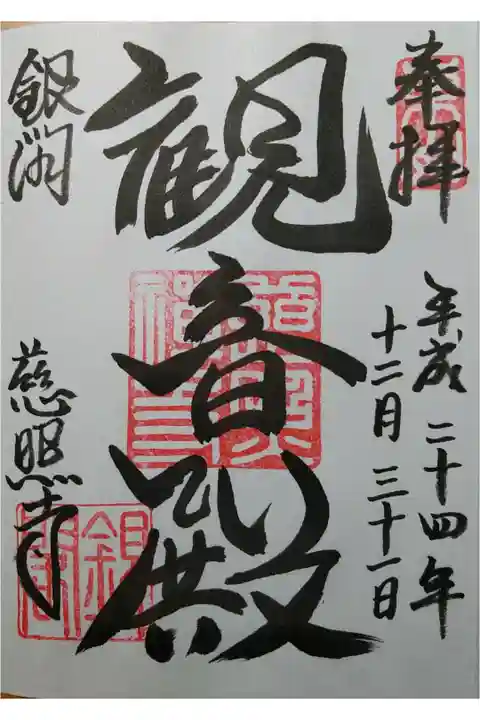 奉拝
平成二十四年
十二月三十一日
観音殿
銀閣
慈照寺